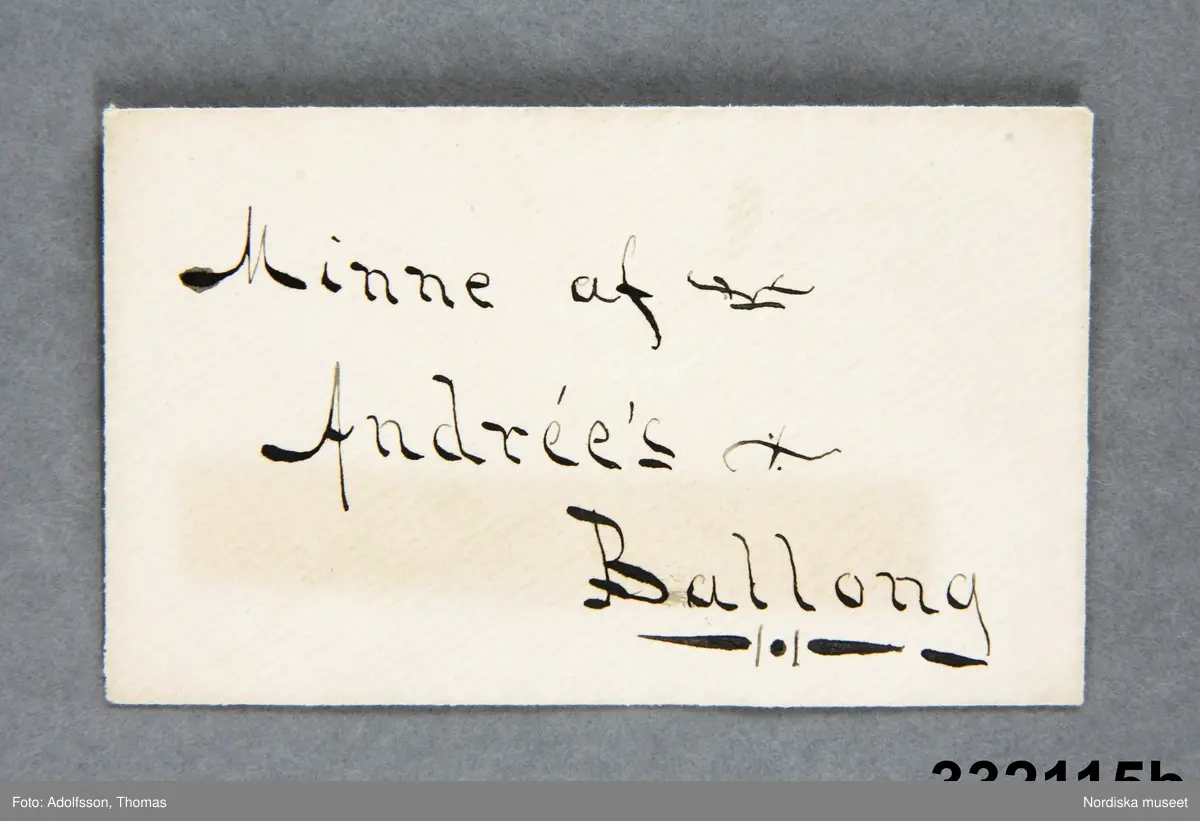 Minne af
Andrée's
Ballong
332115b
Foto: Adolfsson, Thomas
Nordiska museet